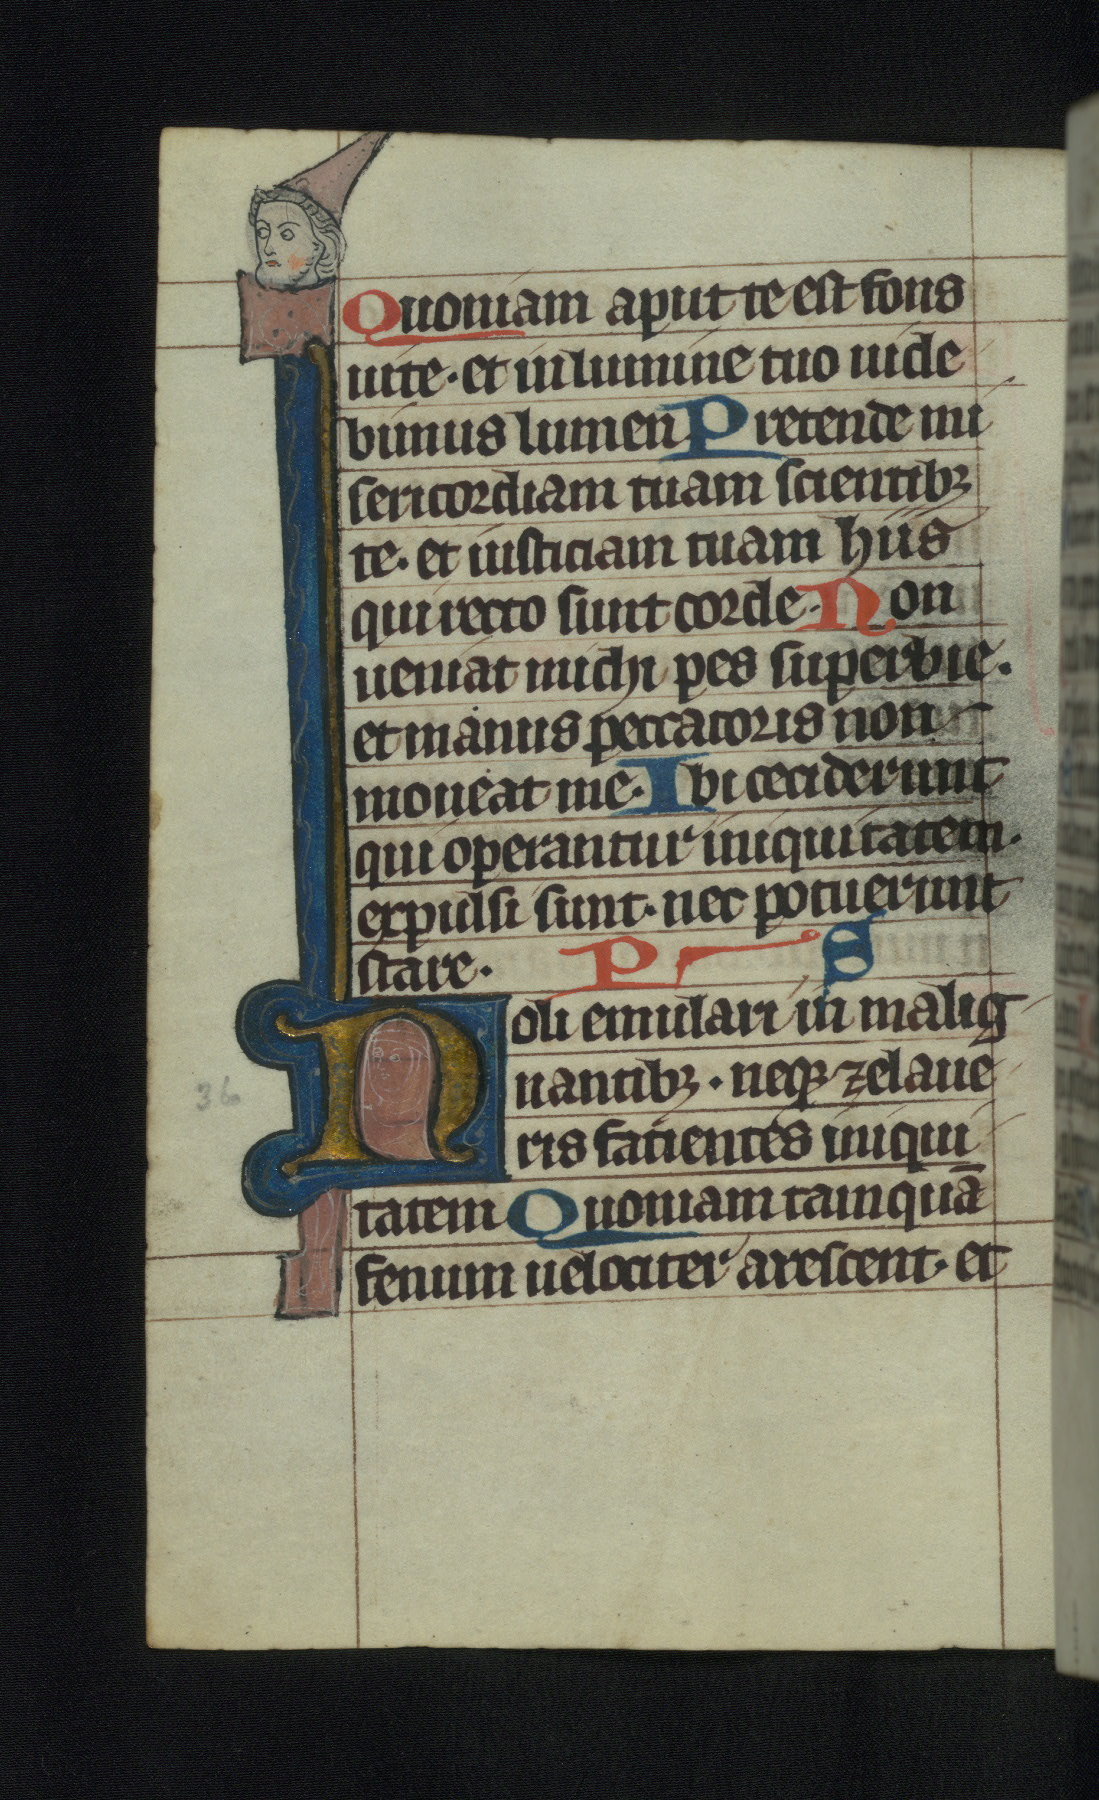 Quoniam aput te est fons
uite · et in lumine tuo uide
bimus lumen Pretende mi
sericordiam tuam scientibꝫ
te · et iusticiam tuam hiis
qui recto sunt corde · Non
ueniat michi pes superbie .
et manus peccatoris non
moueat me · Ibi ceciderunt
qui operantur iniquitatem ·
expulsi sunt · nec potuerunt
stare · PS
Noli emulari in malig
nantibꝫ · neqꝫ zelaue
ris facientes iniqui
tatem Quoniam tamquā
fenum uelociter arescent · et
36